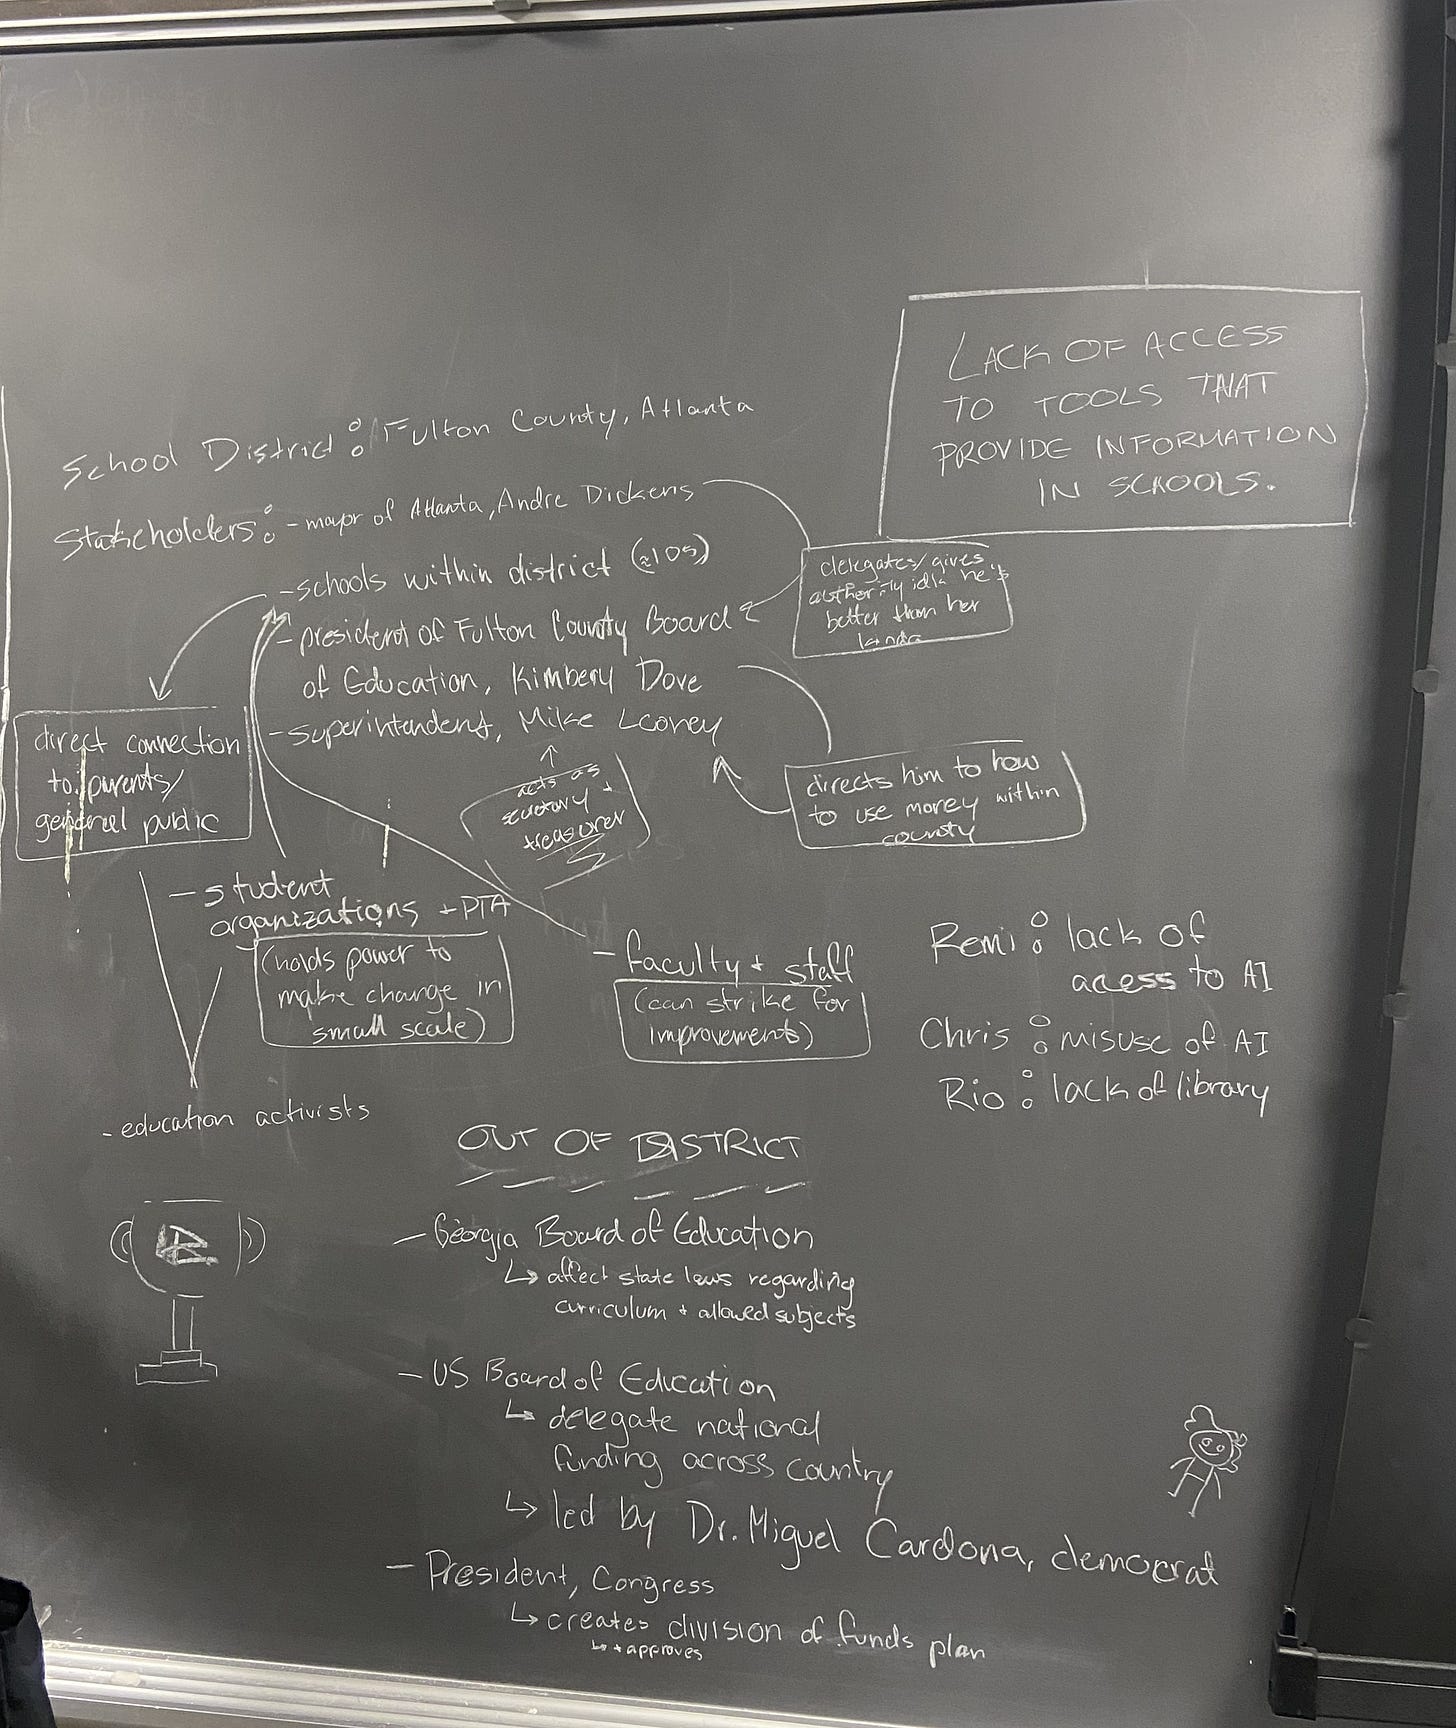 LACK OF ACCESS
TO TOOLS THAT
PROVIDE INFORMATION
IN SCHOOLS.
School District: Fulton County, Atlanta
Stakeholders: - mayor of Atlanta, Andre Dickens
- schools within district (≈105)
- president of Fulton County Board
of Education, Kimbery Dove
- superintendent, Mike Looney
delegates/gives
authority idk he's
better than her
kinda
direct connection
to parents/
general public
acts as
secretary +
treasurer
directs him to how
to use money within
county
- student
organizations + PTA
(holds power to
make change in
small scale)
- faculty + staff
(can strike for
improvements)
Remi: lack of
access to AI
Chris: misuse of AI
Rio: lack of library
- education activists
OUT OF DISTRICT
- Georgia Board of Education
↳ affect state laws regarding
curriculum + allowed subjects
- US Board of Education
↳ delegate national
funding across country
↳ led by Dr. Miguel Cardona, democrat
- President, Congress
↳ creates division of funds plan
↳ + approves